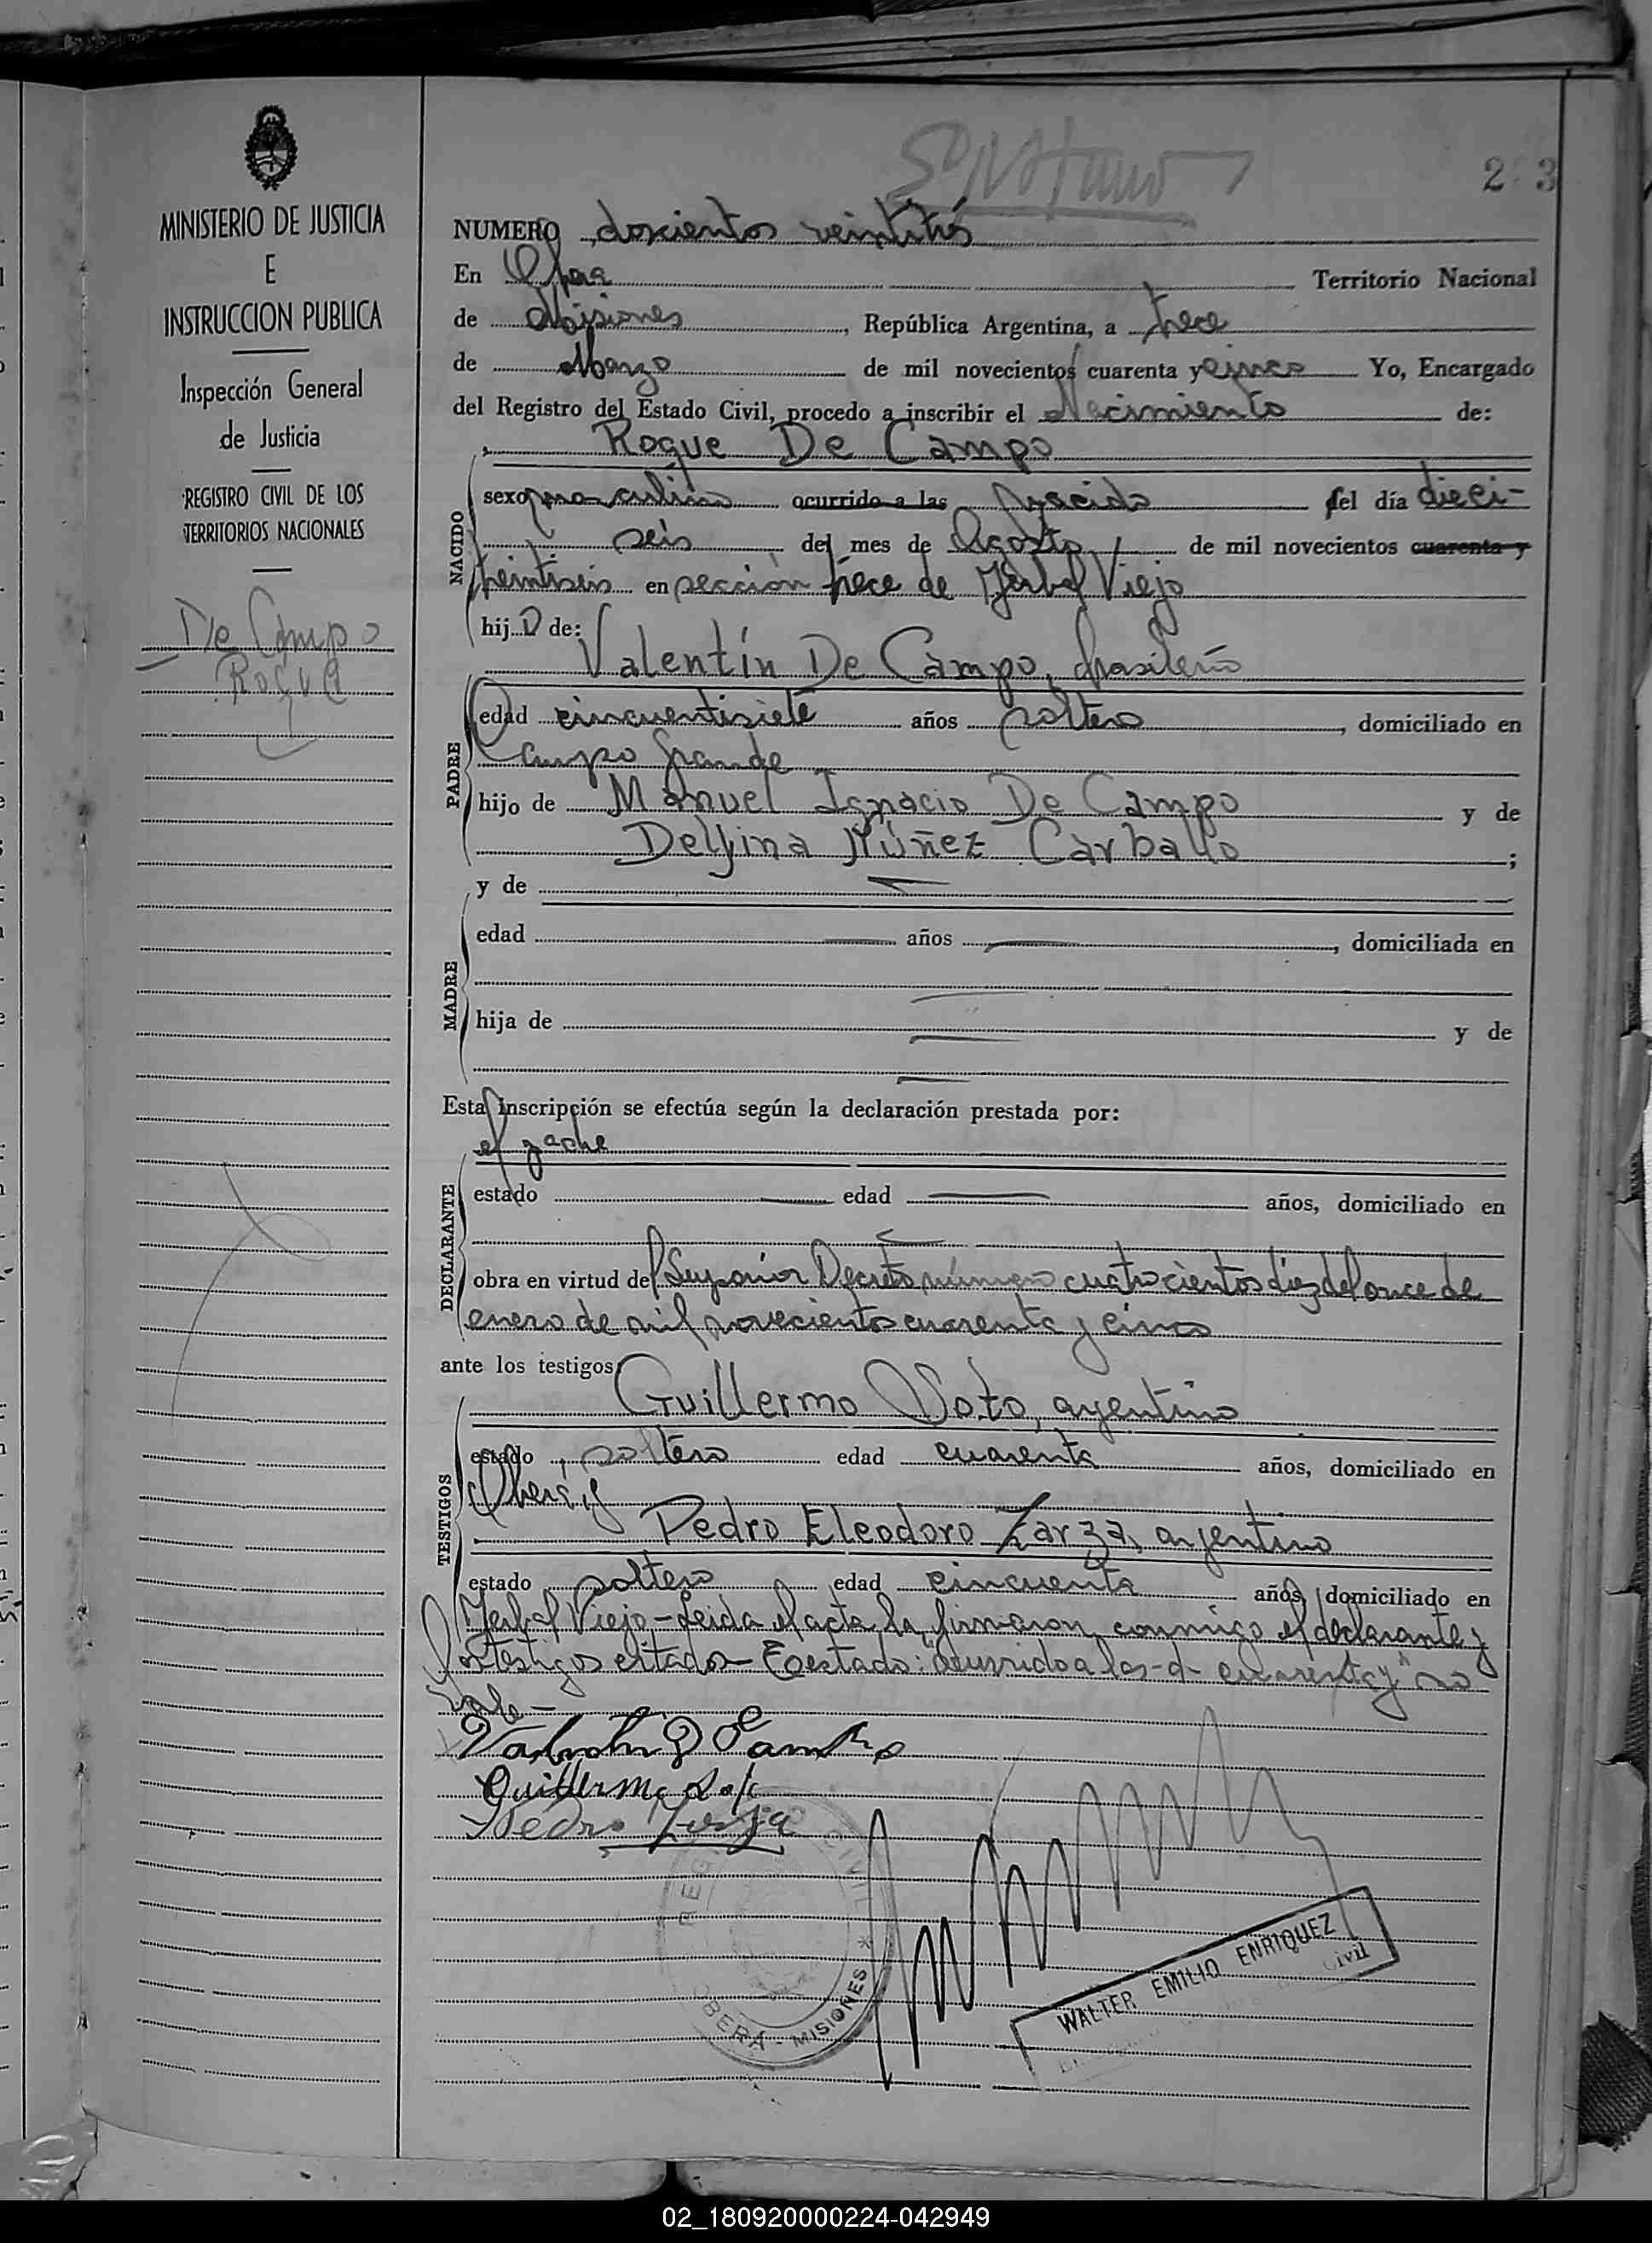 MINISTERIO DE JUSTICIA
E
INSTRUCCION PUBLICA
Inspección General
de Justicia
REGISTRO CIVIL DE LOS
TERRITORIOS NACIONALES
De Campo
Roque
2 3
NUMERO doscientos veintitrés
En Oberá Territorio Nacional
de Misiones, República Argentina, a trece
de Marzo de mil novecientos cuarenta y cinco Yo, Encargado
del Registro del Estado Civil, procedo a inscribir el Nacimiento de:
Roque De Campo
NACIDO
sexo masculino ocurrido a las nacido del día dieci-
seis del mes de Agosto de mil novecientos cuarenta y
veintiseis en sección trece de Yerbal Viejo
hijo de:
Valentín De Campo, brasileño
PADRE
edad cincuentisiete años soltero, domiciliado en
Campo Grande
hijo de Manuel Ignacio De Campo y de
Delfina Núñez Carballo;
y de
MADRE
edad años, domiciliada en
hija de y de
Esta inscripción se efectúa según la declaración prestada por:
el padre
DECLARANTE
estado edad años, domiciliado en
obra en virtud del Superior Decreto número cuatrocientos diez del once de
enero de mil novecientos cuarenta y cinco
ante los testigos:
Guillermo Soto, argentino
TESTIGOS
estado soltero edad cuarenta años, domiciliado en
Oberá y
Pedro Eleodoro Zarza, argentino
estado soltero edad cincuenta años, domiciliado en
Yerbal Viejo - Leida el acta la firmaron conmigo el declarante y
los testigos citados - Testado: "ocurrido a las - d - cuarenta y" no
vale -
Valentin D Campo
Guillermo Soto
Pedro Zarza
REG CIVIL * OBERÁ - MISIONES
WALTER EMILIO ENRIQUEZ
Civil
02_180920000224-042949